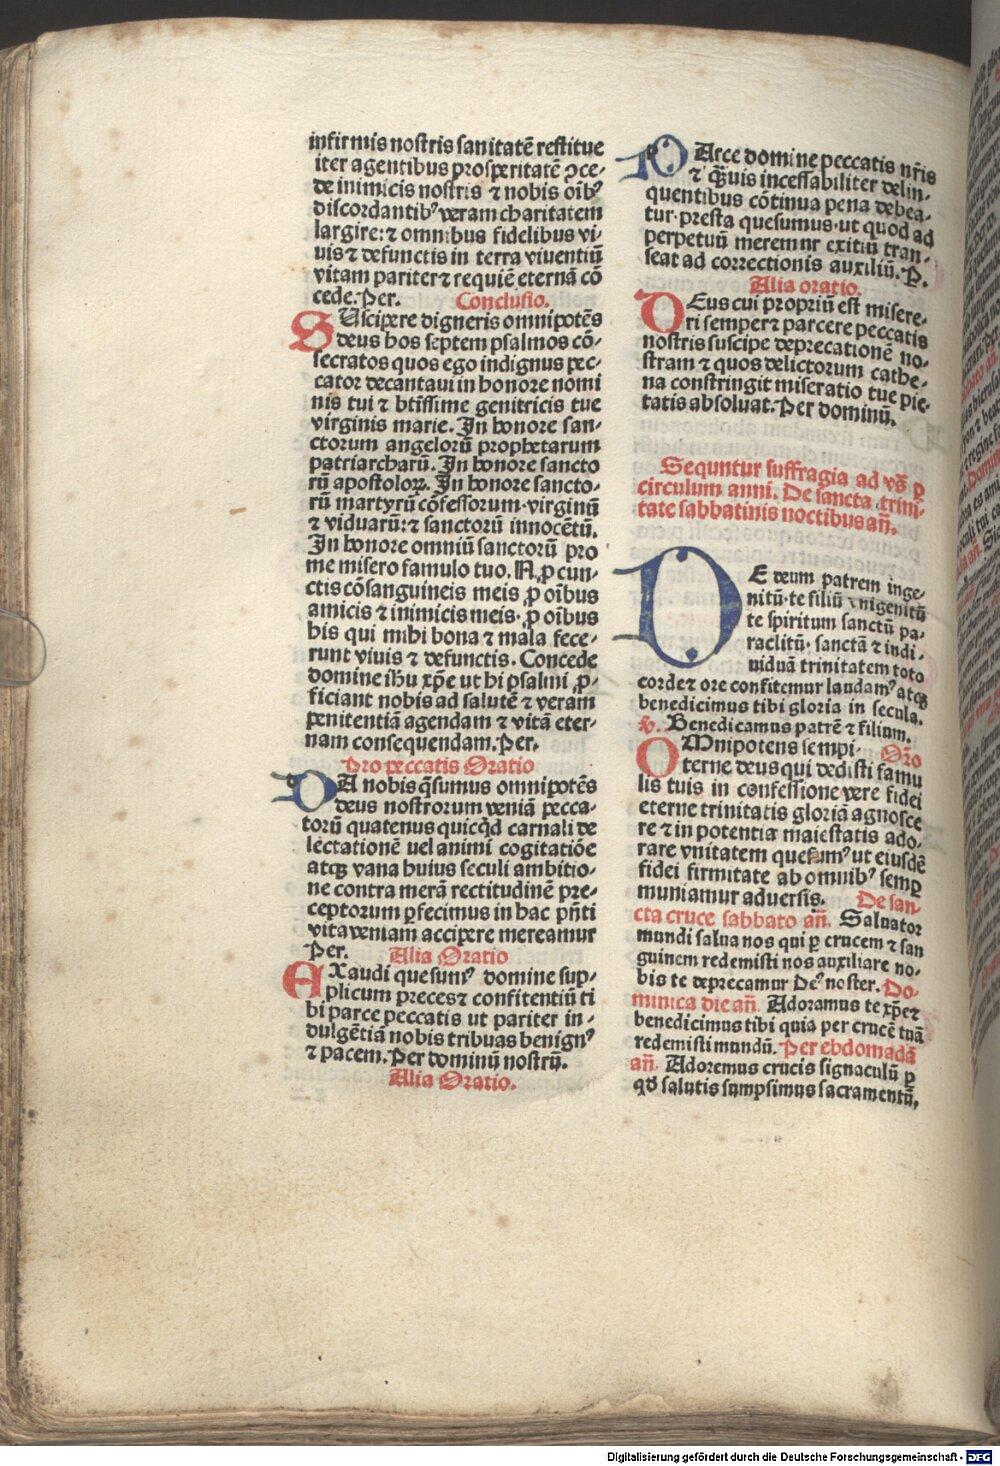 infirmis nostris sanitatē restitue
iter agentibus prosperitatē ꝯce-
de inimicis nostris ⁊ nobis oībꝰ
discordantibꝰ veram charitatem
largire: ⁊ omnibus fidelibus vi-
uis ⁊ defunctis in terra viventiū
vitam pariter ⁊ requiē eternā cō
cede. Per. Conclusio.
SUscipere digneris omnipotēs
deus hos septem psalmos cō-
secratos quos ego indignus pec-
cator decantaui in honore nomi
nis tui ⁊ btīssime genitricis tue
virginis marie. In honore san-
ctorum angelorū prophetarum
patriarcharū. In honore sancto
rū apostoloꝝ. In honore sancto-
rū martyrū cōfessorum virginū
⁊ viduarū: ⁊ sanctorū innocētū.
In honore omniū sanctorū pro
me misero famulo tuo. N. ꝓ cun-
ctis cōsanguineis meis ꝓ oībus
amicis ⁊ inimicis meis. ꝓ oībus
his qui mihi bona ⁊ mala fece-
runt viuis ⁊ defunctis. Concede
domine ihū xp̄e ut hi psalmi ꝓ-
ficiant nobis ad salutē ⁊ veram
penitentiā agendam ⁊ vitā eter-
nam consequendam. Per.
Pro peccatis Oratio
DA nobis q̄sumus omnipotēs
deus nostrorum veniā pecca-
torū quatenus quicq̄d carnali de
lectatione uel animi cogitatiōe
atqꝫ vana huius seculi ambitio-
ne contra merā rectitudinē pre-
ceptorum ꝑfecimus in hac pn̄ti
vita veniam accipere mereamur
Per. Alia Oratio
EXaudi quesumꝰ domine sup-
plicum preces ⁊ confitentiū ti
bi parce peccatis ut pariter in-
dulgētiā nobis tribuas benignꝰ
⁊ pacem. Per dominū nostrū.
Alia Oratio.
PArce domine peccatis nr̄is
⁊ q̄uis incessabiliter delin-
quentibus cōtinua pena debea-
tur. presta quesumus. ut quod ad
perpetuū meremur exitiū tran-
seat ad correctionis auxiliū. P.
Alia oratio.
DEus cui propriū est misere-
ri semper ⁊ parcere peccatis
nostris suscipe deprecationē no-
stram ⁊ quos delictorum cathe-
na constringit miseratio tue pie-
tatis absoluat. Per dominū.
Sequntur suffragia ad vō̄ ꝑ
circulum anni. De sancta trini-
tate sabbatinis noctibus añ.
DE deum patrem inge-
nitū. te filiū vnigenitū
te spiritum sanctū pa-
raclitū. sanctā ⁊ indi-
uiduā trinitatem toto
corde ⁊ ore confitemur laudamꝰ atqꝫ
benedicimus tibi gloria in secula.
℣. Benedicamus patrē ⁊ filium.
OMnipotens sempi- Or̄o
terne deus qui dedisti famu
lis tuis in confessione vere fidei
eterne trinitatis gloriā agnosce
re ⁊ in potentia maiestatis ado-
rare vnitatem quesumꝰ ut eiusdē
fidei firmitate ab omnibꝰ semꝑ
muniamur aduersis. De san-
cta cruce sabbato añ. Saluator
mundi salua nos qui ꝑ crucem ⁊ san
guinem redemisti nos auxiliare no-
bis te deprecamur deꝰ noster. Do-
minica die añ. Adoramus te xp̄e ⁊
benedicimus tibi quia per crucē tuā
redemisti mundū. Per ebdomadā
añ. Adoremus crucis signaculū ꝑ
qd̄ salutis sumpsimus sacramentū.
Digitalisierung gefördert durch die Deutsche Forschungsgemeinschaft - DFG